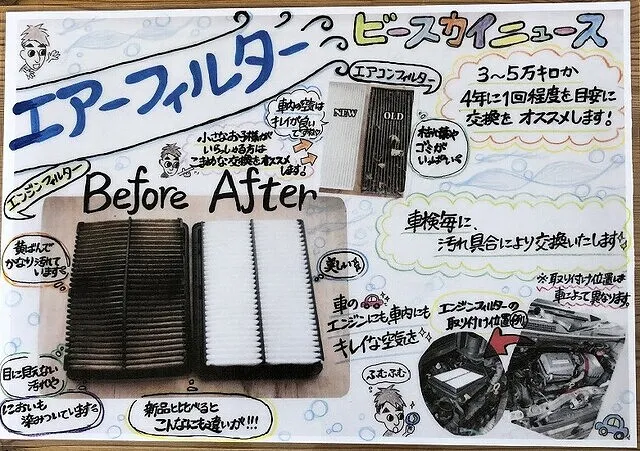 エアーフィルター
ビースカイニュース
エアコンフィルター
3〜5万キロか
4年に1回程度を目安に
交換を オススメします!
車内の空気は
キレイが良い
ですね♪
小さなお子様が
いらっしゃる方は
こまめな交換をオススメ
します!
NEW
OLD
枯れ葉や
ゴミが
いっぱい
エンジンフィルター
Before After
車検毎に、
汚れ具合により交換いたします
黄ばんで
かなり汚れて
います
美しいです
※取り付け位置は
車によって異なります
車の
エンジンにも、車内にも
キレイな空気を
エンジンフィルターの
取り付け位置例
目に見えない
汚れや
においも
染みついています
新品と比べると
こんなにも違いが!!!
ふむふむ